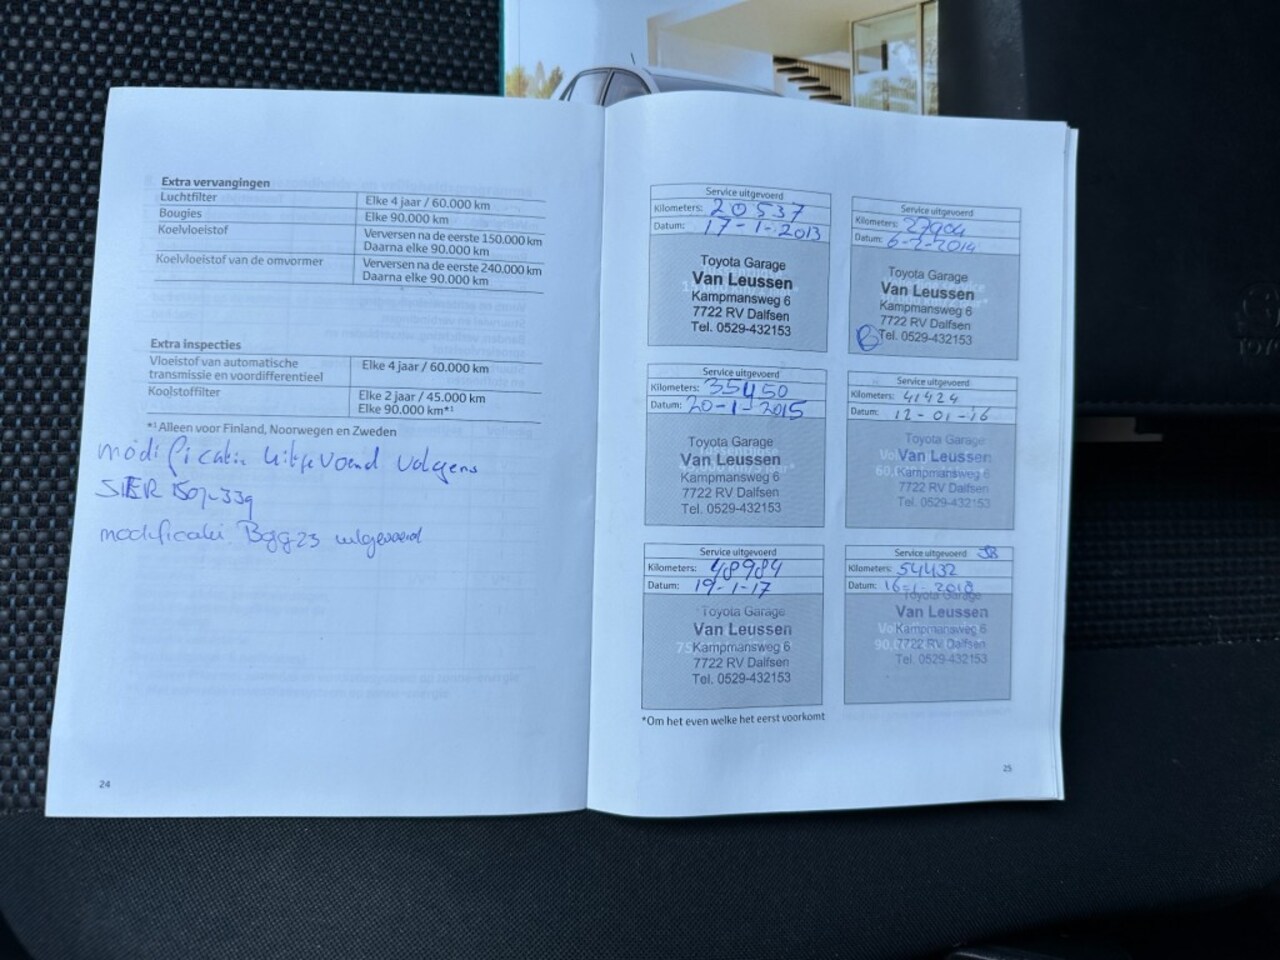 Extra vervangingen
Luchtfilter Elke 4 jaar / 60.000 km
Bougies Elke 90.000 km
Koelvloeistof Verversen na de eerste 150.000 km
Daarna elke 90.000 km
Koelvloeistof van de omvormer Verversen na de eerste 240.000 km
Daarna elke 80.000 km
Extra inspecties
Vloeistof van automatische
transmissie en voordifferentieel Elke 4 jaar / 60.000 km
Koolstoffilter Elke 2 jaar / 45.000 km
Elke 90.000 km*¹
*¹ Alleen voor Finland, Noorwegen en Zweden
modificatie uitgevoerd volgens
modificatie uitgevoerd
24
Service uitgevoerd
Kilometers: 20537
Datum: 17-1-2013
Toyota Garage
Van Leussen
Kampmansweg 6
7722 RV Dalfsen
Tel. 0529-432153
Service uitgevoerd
Kilometers: 27904
Datum: 6-2-2014
Toyota Garage
Van Leussen
Kampmansweg 6
7722 RV Dalfsen
Tel. 0529-432153
Service uitgevoerd
Kilometers: 35450
Datum: 20-1-2015
Toyota Garage
Van Leussen
Kampmansweg 6
7722 RV Dalfsen
Tel. 0529-432153
Service uitgevoerd
Kilometers: 41424
Datum: 12-01-16
Toyota Garage
Van Leussen
Kampmansweg 6
7722 RV Dalfsen
Tel. 0529-432153
Service uitgevoerd
Kilometers: 48984
Datum: 19-1-17
Toyota Garage
Van Leussen
Kampmansweg 6
7722 RV Dalfsen
Tel. 0529-432153
Service uitgevoerd
Kilometers: 54432
Datum: 16-1-2018
Toyota Garage
Van Leussen
Kampmansweg 6
7722 RV Dalfsen
Tel. 0529-432153
*Om het even welke het eerst voorkomt
25